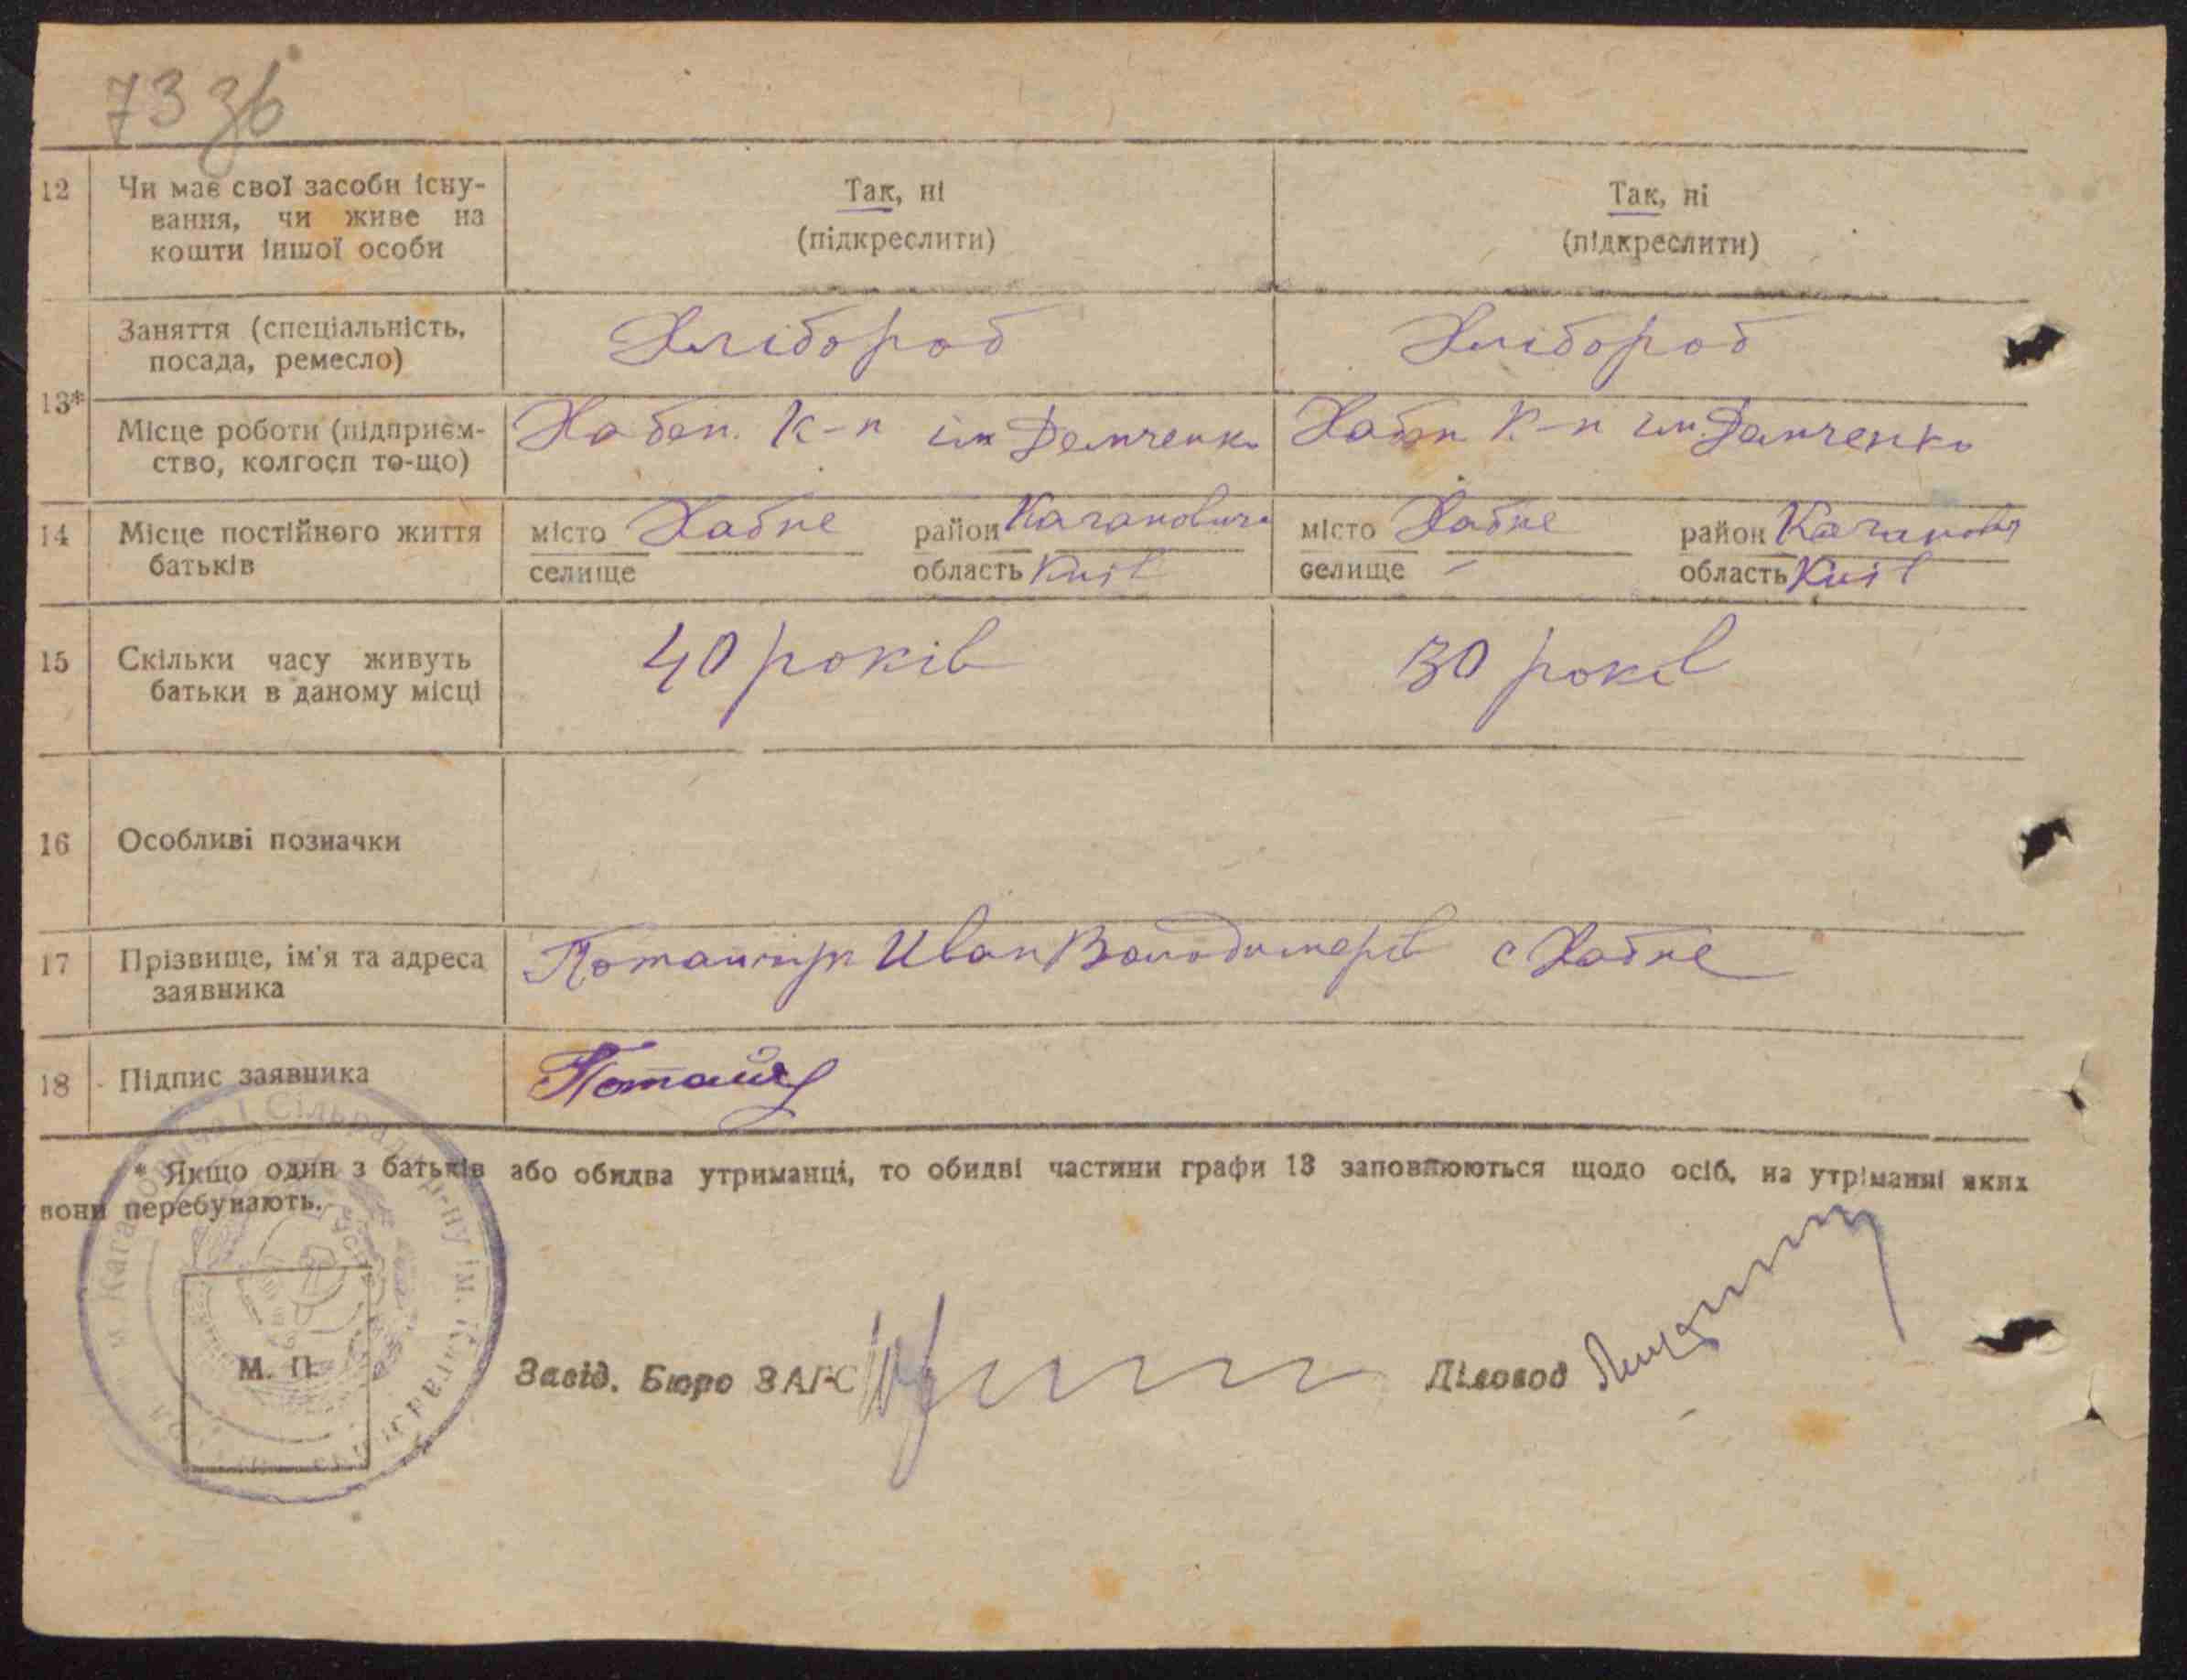 73 зв
12 Чи має свої засоби існу- Так, ні Так, ні
вання, чи живе на
кошти іншої особи (підкреслити) (підкреслити)
Заняття (спеціальність, Хлібороб Хлібороб
посада, ремесло)
13*
Місце роботи (підприєм- Хабен. К-п ім Демченк Хабн К-п ім Демченко
ство, колгосп то-що)
14 Місце постійного життя місто Хабне район Кагановича місто Хабне район
батьків селище область Київ селище область Київ
15 Скільки часу живуть 40 років 30 років
батьки в даному місці
16 Особливі позначки
17 Прізвище, ім'я та адреса Иван Володимерів с Хабне
заявника
18 Підпис заявника
* Якщо один з батьків або обидва утриманці, то обидві частини графи 13 заповнюються щодо осіб, на утріманні яких
вони перебувають.
М. П. Завід. Бюро ЗАГС Діловод